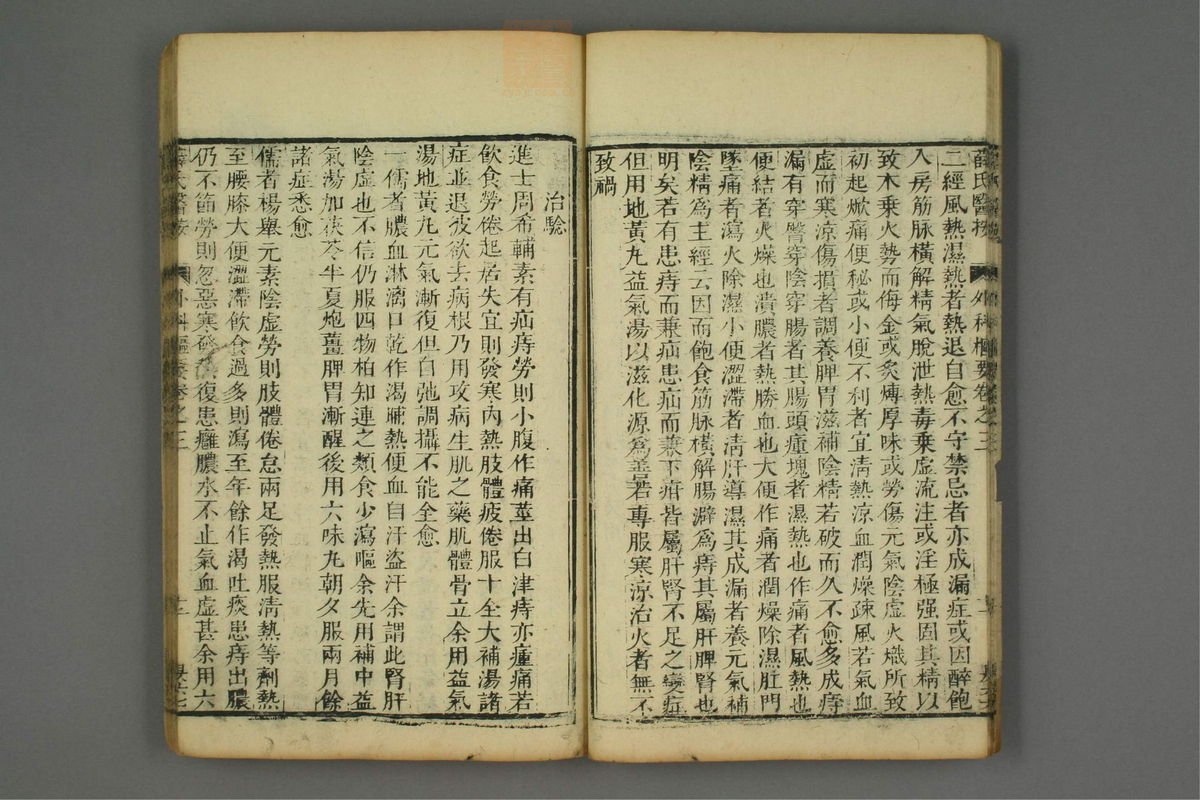 薛氏醫按 外科樞要卷之三
二經風熱濕熱者熱退自愈不守禁忌者亦成漏症或因醉飽
入房筋脉橫解精氣脫泄熱毒乗虛流注或淫極强固其精以
致木乗火勢而侮金或炙煿厚味或勞傷元氣陰虛火熾所致
初起焮痛便秘或小便不利者宜清熱涼血潤燥疎風若氣血
虛而寒涼傷損者調養脾胃滋補陰精若破而久不愈多成痔
漏有穿臀穿陰穿腸者其腸頭腫塊者濕熱也作痛者風熱也
便結者火燥也潰膿者熱勝血也大便作痛者潤燥除濕肛門
墜痛者瀉火除濕小便澀滯者清肝導濕其成漏者養元氣補
陰精爲主經云因而飽食筋脉橫解腸澼爲痔其屬肝脾腎也
明矣若有患痔而兼疝患疝而兼下疳皆屬肝腎不足之變症
但用地黃丸益氣湯以滋化源爲善若專服寒涼治火者無不
致禍
治驗
進士周希輔素有疝痔勞則小腹作痛莖出白津痔亦腫痛若
飲食勞倦起居失宜則發寒内熱肢體疲倦服十全大補湯諸
症並退彼欲去病根乃用攻病生肌之藥肌體骨立余用益氣
湯地黃丸元氣漸復但自弛調攝不能全愈
一儒者膿血淋漓口乾作渴晡熱便血自汗盗汗余謂此腎肝
陰虛也不信仍服四物柏知連之類食少瀉嘔余先用補中益
氣湯加茯苓半夏炮薑脾胃漸醒後用六味丸朝夕服兩月餘
諸症悉愈
儒者楊舉元素陰虛勞則肢體倦怠兩足發熱服清熱等劑熱
至腰膝大便澀滯飲食過多則瀉至年餘作渴吐痰患痔出膿
仍不節勞則忽惡寒發熱復患癰膿水不止氣血虛甚余用六
薛氏醫按 外科樞要卷之三